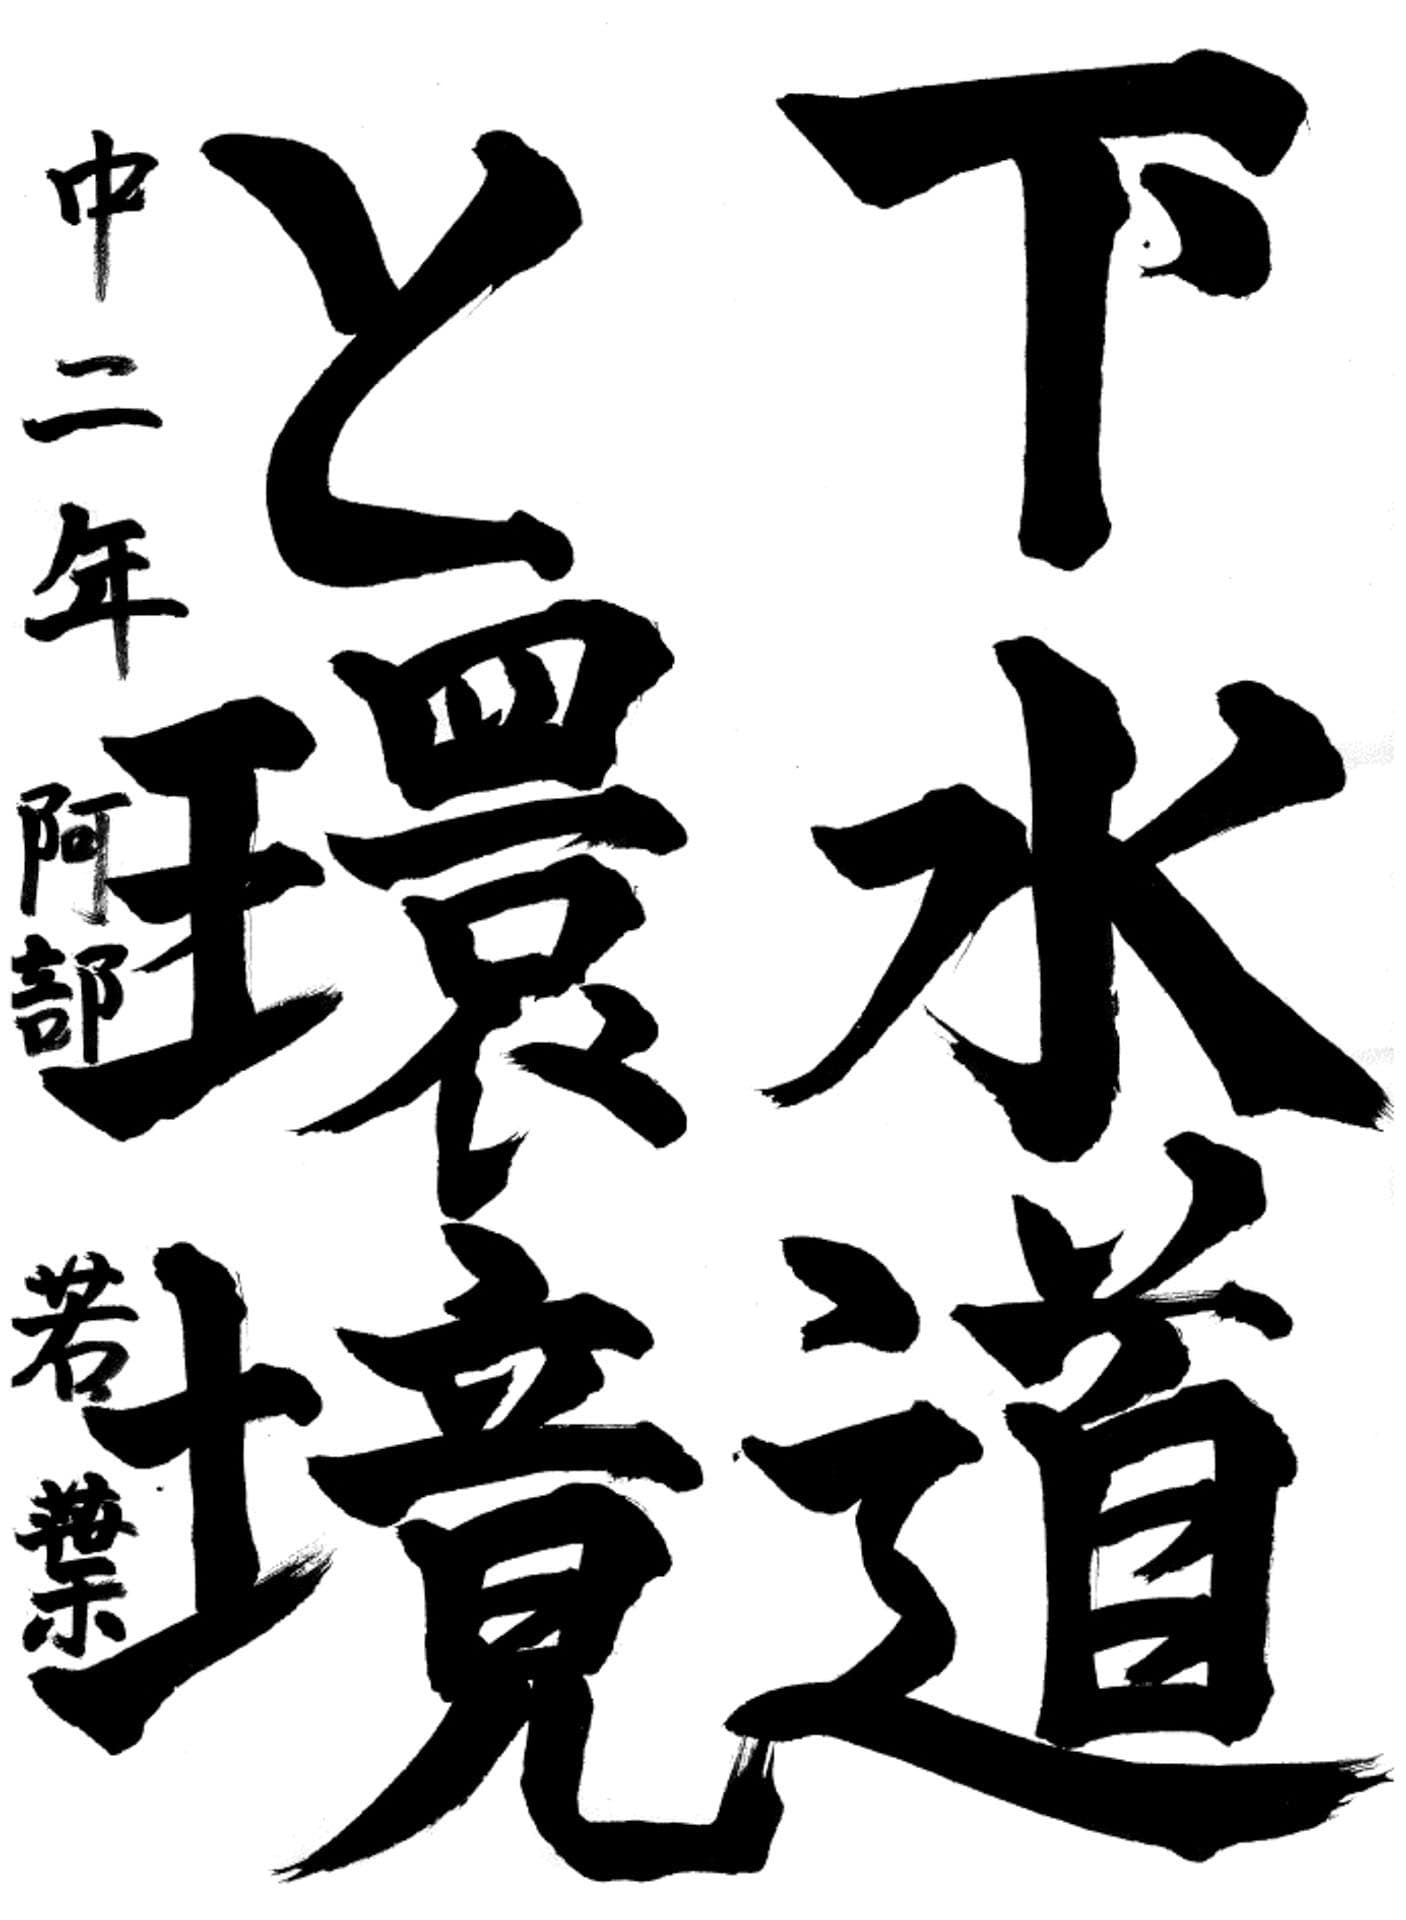 下水道
と環境
中二年 阿部 若葉